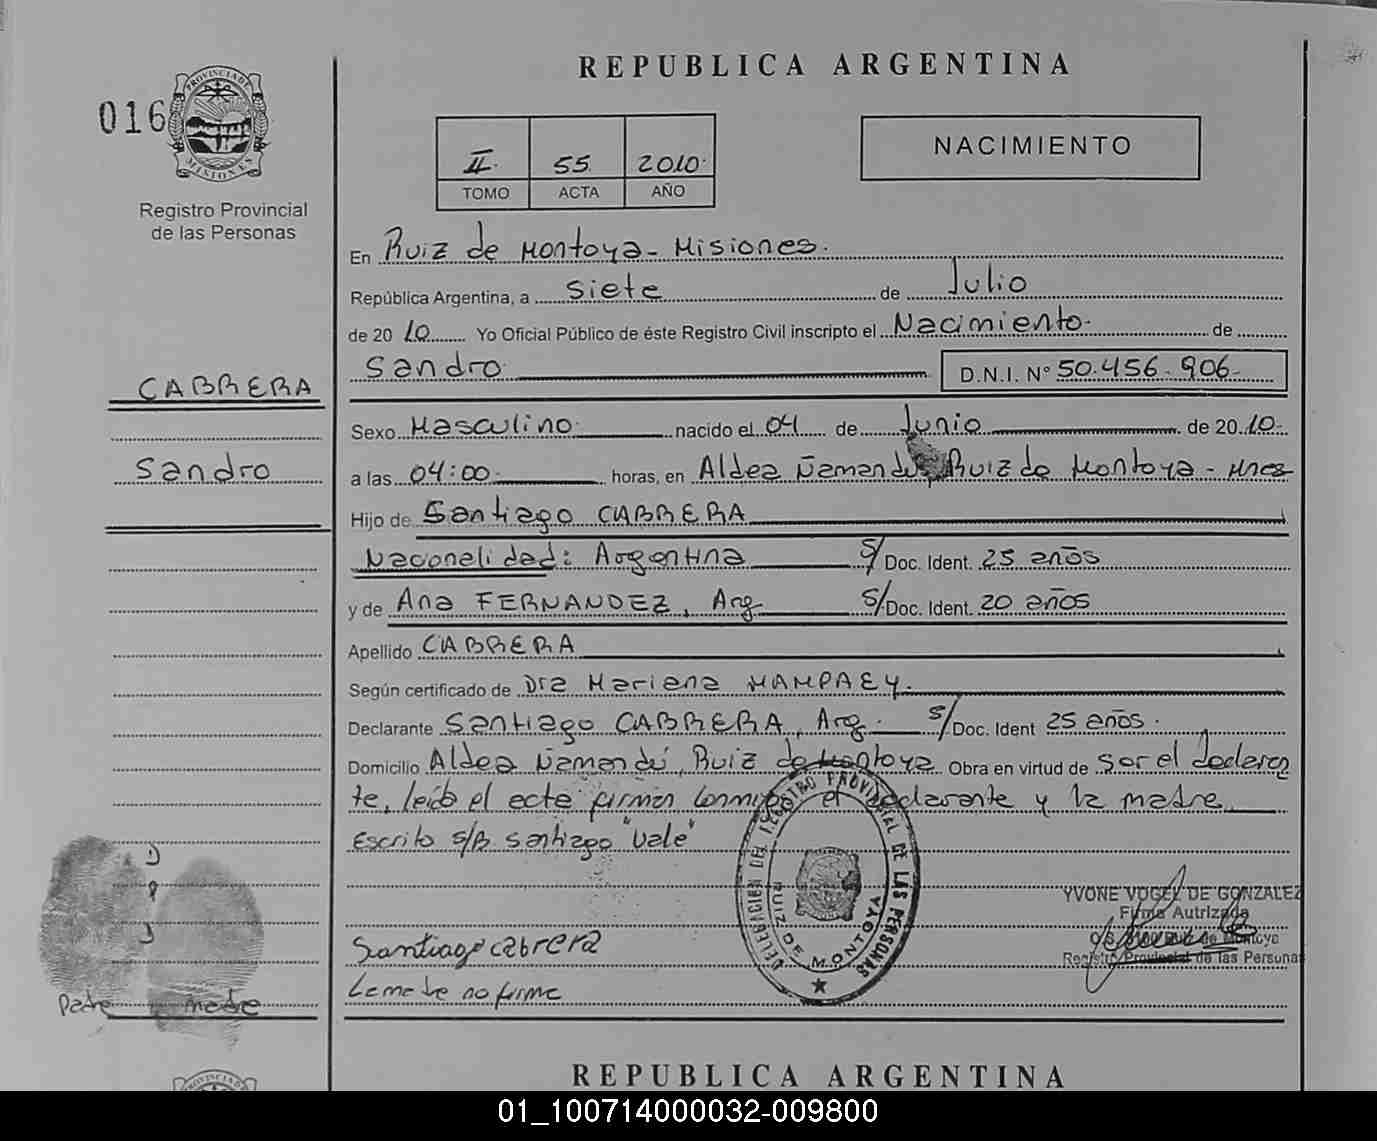 REPUBLICA ARGENTINA
016
PROVINCIA DE MISIONES
Registro Provincial
de las Personas
II. 55. 2010.
TOMO ACTA AÑO
NACIMIENTO
En Ruiz de Montoya - Misiones.
República Argentina, a siete de Julio
de 20 10 Yo Oficial Público de éste Registro Civil inscripto el Nacimiento. de
Sandro D.N.I. N° 50.456.906-
CABRERA
Sandro
Sexo Masculino nacido el 04 de Junio de 20 10.
a las 04:00 horas, en Aldea Ñamandú Ruiz de Montoya - Mnes
Hijo de Santiago CABRERA
Nacionalidad: Argentina S/ Doc. Ident. 25 años
y de Ana FERNANDEZ, Arg S/ Doc. Ident. 20 años
Apellido CABRERA
Según certificado de Dra Mariana MAMPAEY.
Declarante Santiago CABRERA, Arg. S/ Doc. Ident 25 años.
Domicilio Aldea Ñamandú, Ruiz de Montoya Obra en virtud de ser el declaran
te, leído el acta firman conmigo el declarante y la madre.
Escrito s/B Santiago "Vale"
D
P
D
Padre madre
Santiago cabrera
La madre no firma
DELEGACION DEL REGISTRO PROVINCIAL DE LAS PERSONAS
RUIZ DE MONTOYA
YVONE VOGEL DE GONZALEZ
Firma Autrizada
de Montoya
Registro Provincial de las Personas
REPUBLICA ARGENTINA
PROVINCIA DE
01_100714000032-009800